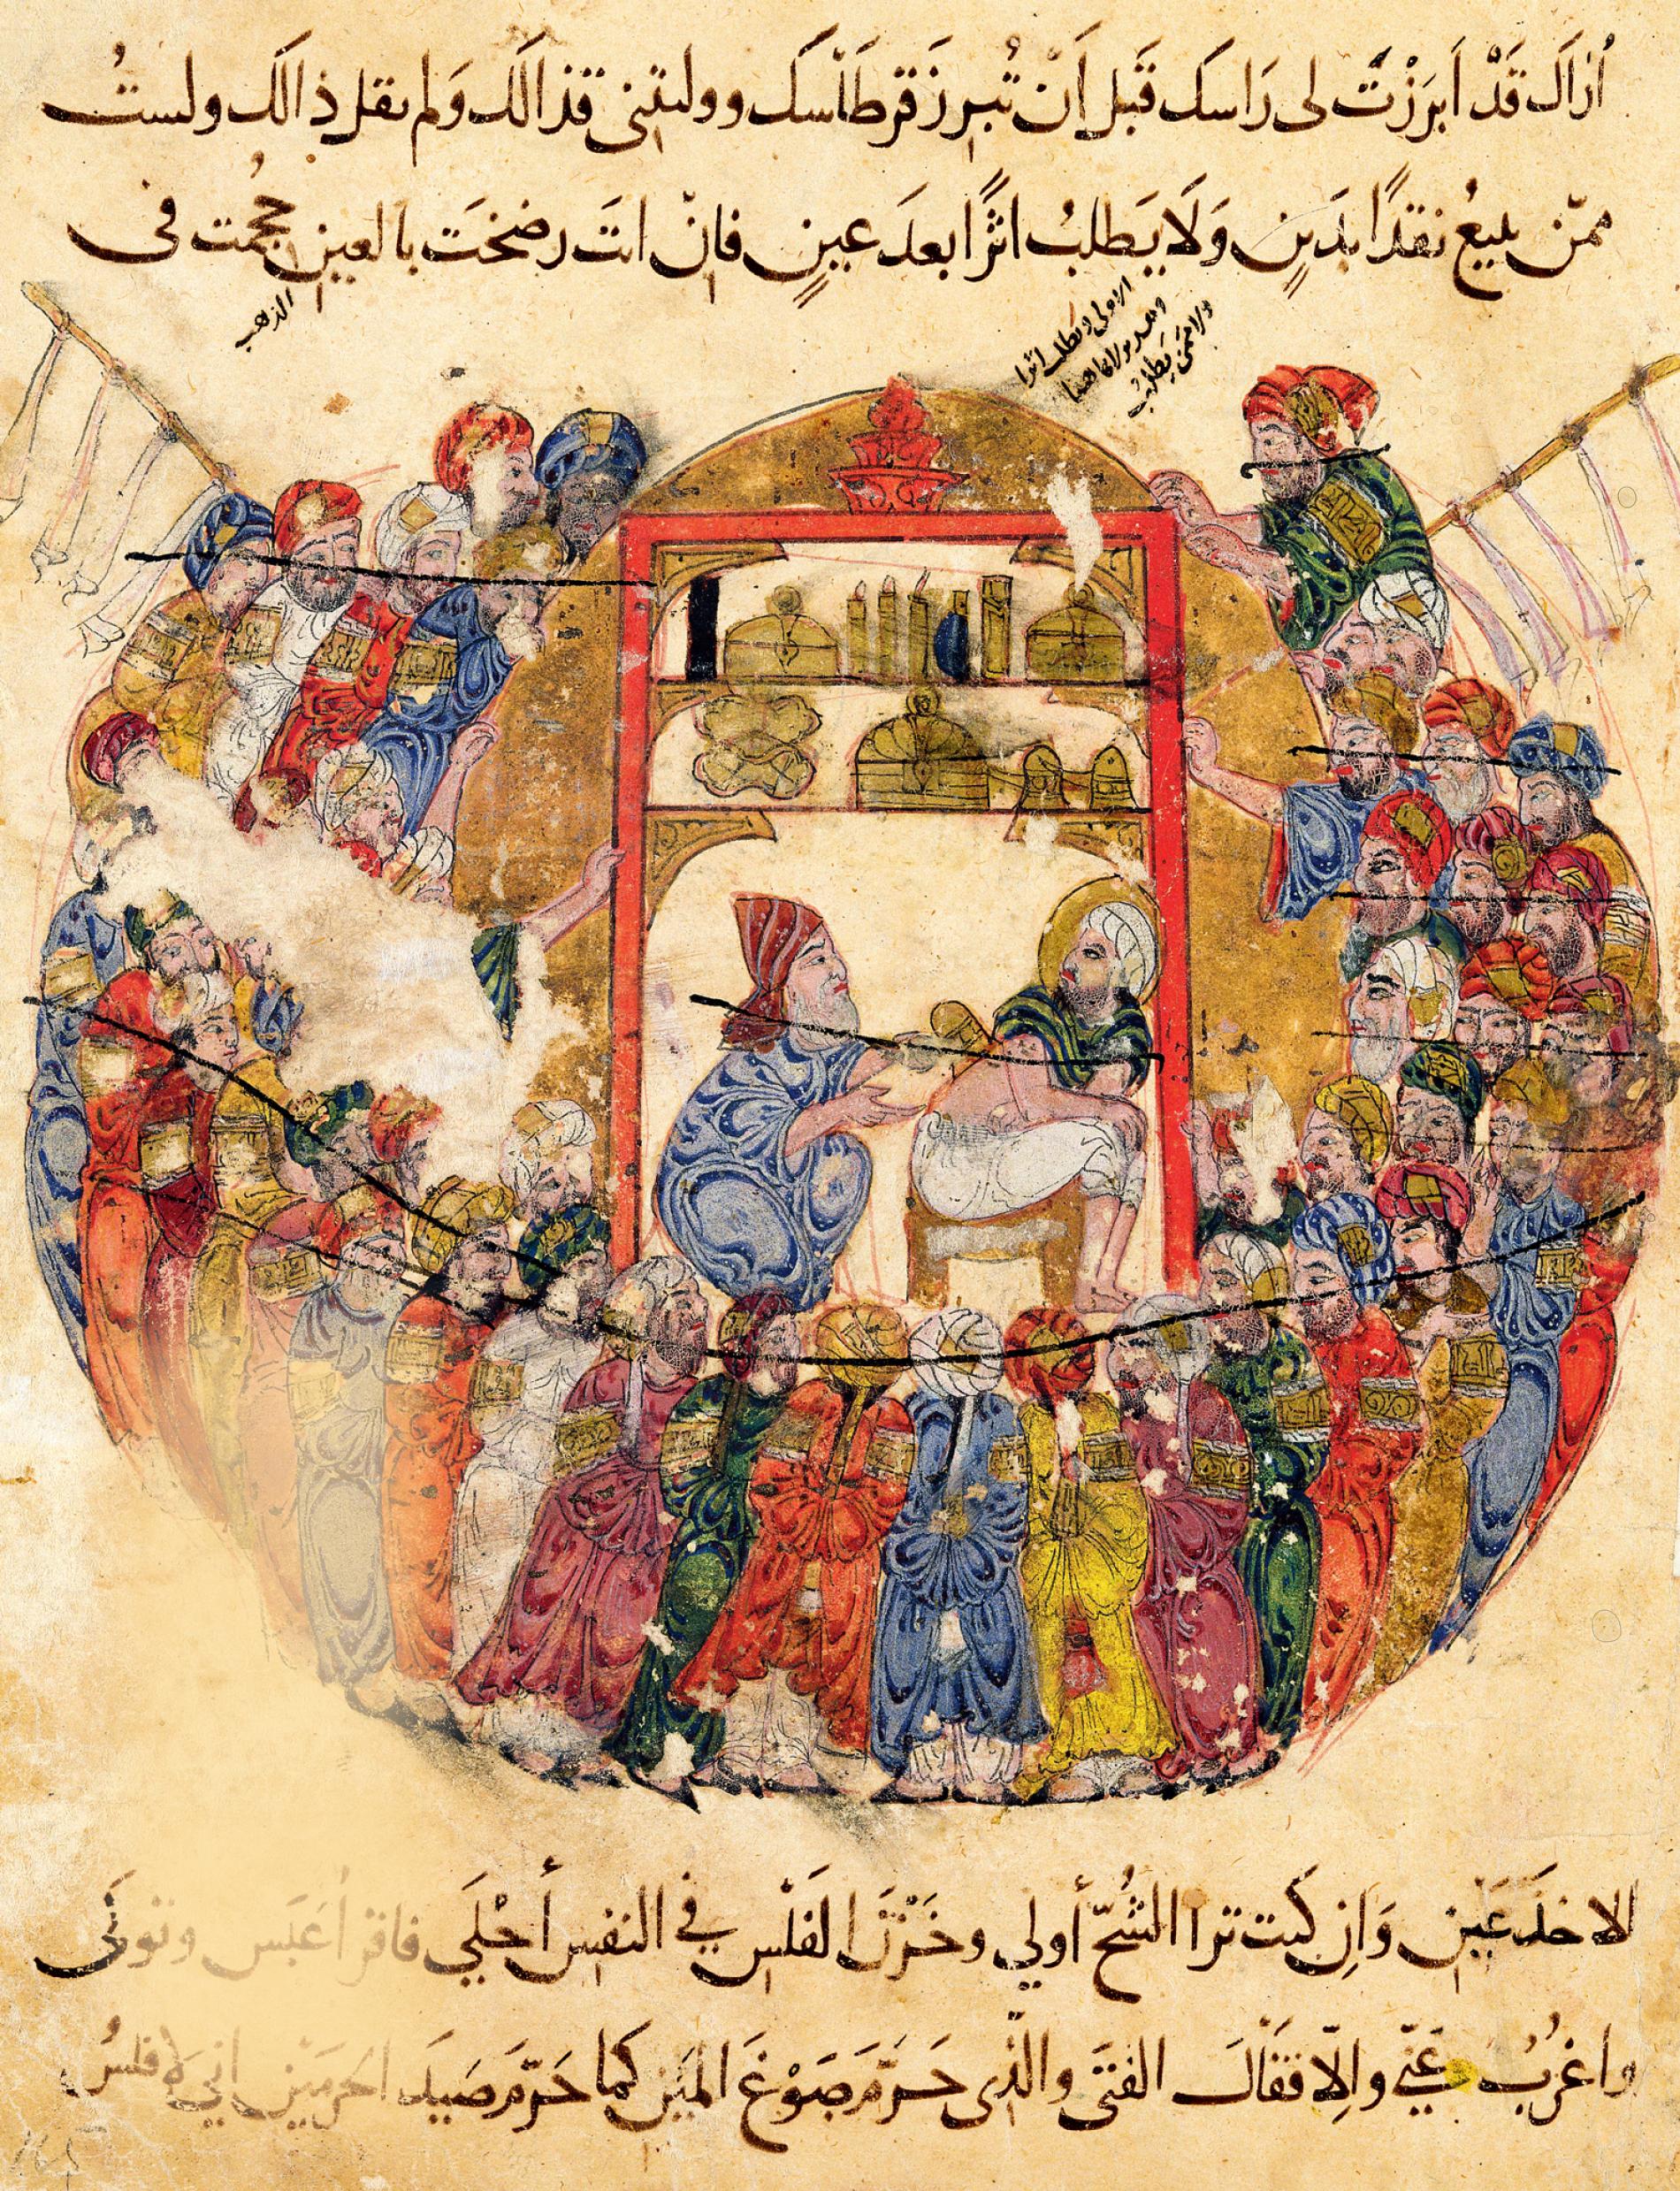 أراك قَدْ اَبرَزْتَ لى رَاسك قَبل اَنْ تُبرز قرطَاسك وولیتنى قذالك وَلم تقل ذالك ولستُ
ممّن يبيعُ نقدًا بدَينٍ وَلَا يَطلبُ اثرًا بعدَ عينٍ فانْ انتَ رضختَ بالعين حُجمت فى
الذهب
ولا ممن يطلب
الاخدَعين وَاِن كنت ترا الشُّحّ أولي وخَزْنَ الفَلْس في النفس أحْلَي فاقرأ عَبَس وتولَّى
واغرُبْ عَنّي والّا فقَالَ الفتَى والذى حَرَّمَ صَوْغَ المَين كما حَرَّمَ صَيدَ الحرمَيْن اني لافلسُ